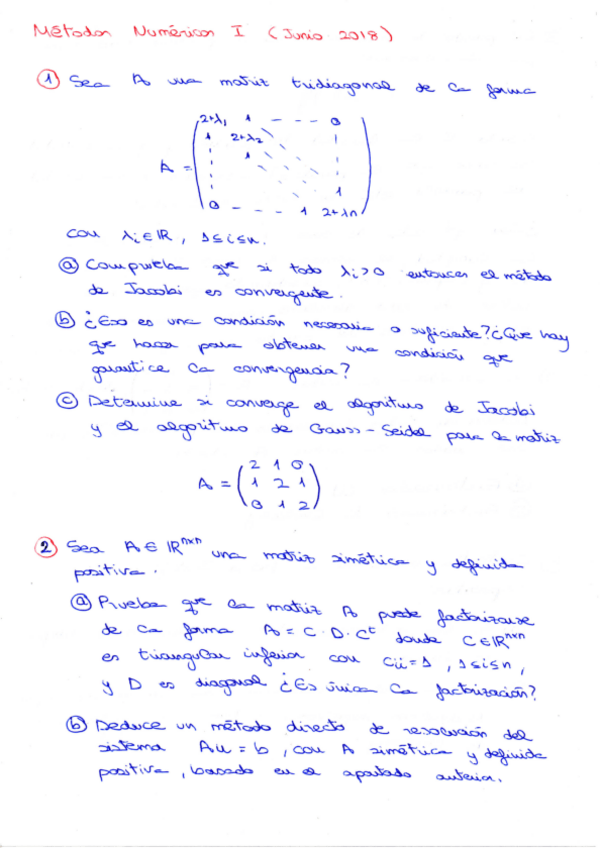 Métodos Numéricos I (Junio 2018)
1 Sea A una matriz tridiagonal de la forma
A = ( 2+λ₁ 1 - - - 0
1 2+λ₂
1
1
0 - - - 1 2+λn )
con λi ∈ ℝ, 1≤i≤n.
a Comprueba que si todo λi>0 entonces el método
de Jacobi es convergente.
b ¿Eso es una condición necesaria o suficiente? ¿Que hay
que hacer para obtener una condición que
garantice la convergencia?
c Determine si converge el algoritmo de Jacobi
y el algoritmo de Gauss-Seidel para la matriz
A = ( 2 1 0
1 2 1
0 1 2 )
2 Sea A ∈ ℝⁿˣⁿ una matriz simétrica y definida
positiva.
a Prueba que la matriz A puede factorizarse
de la forma A = C · D · Cᵗ donde C ∈ ℝⁿˣⁿ
es triangular inferior con Cii = 1, 1≤i≤n,
y D es diagonal ¿Es única la factorización?
b Deduce un método directo de resolución del
sistema Au = b, con A simétrica y definida
positiva, basado en el apartado anterior.